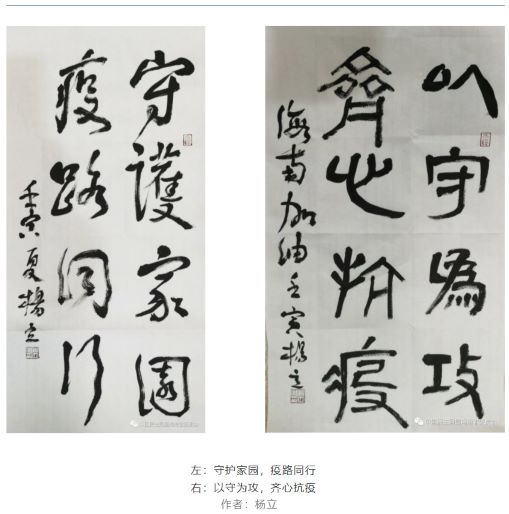 守護家園
疫路同行
壬寅夏楊立
以守為攻
齊心抗疫
海南加油壬寅楊立
左：守护家园，疫路同行
右：以守为攻，齐心抗疫
作者：杨立